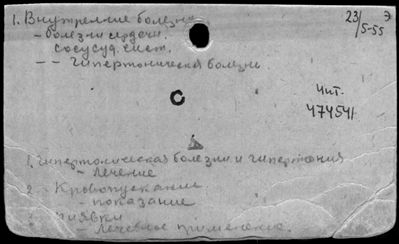 1. Внутренние болезни
- болезни сердечн.
сосуд. сист.
-- Гипертоническ. болезни
23/5-55
Э
С
Чит.
474541
1. Гипертоническая болезнь и гипертония
- лечение
2. Кровопускание
- показание
3. пиявки
- лечебное применение.